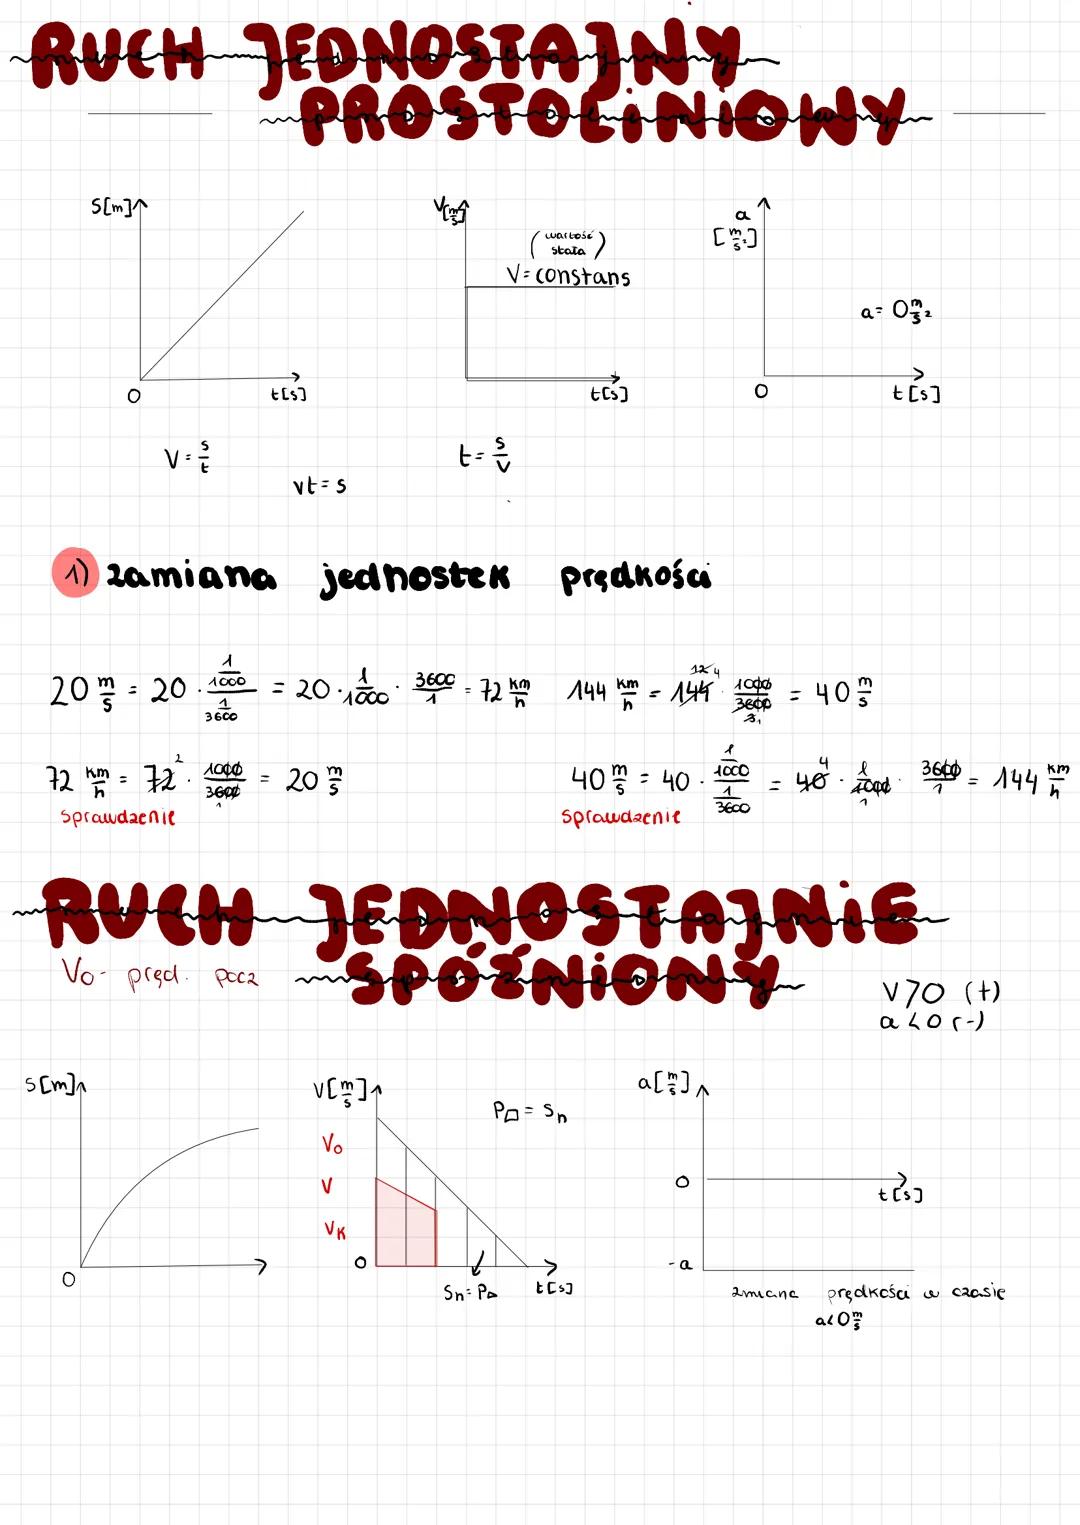 RUCH JEDNOSTAJNY
PROSTOLiNiOWY
S[m]
V[m/s]
a
[m/s²]
(wartość
stała)
V = constans
a = 0 m/s²
0
t[s]
t[s]
0
t[s]
V = s/t
t = s/v
vt = s
1) zamiana jednostek prędkości
20 m/s = 20 · (1/1000)/(1/3600) = 20 · 1/1000 · 3600/1 = 72 km/h
144 km/h = 144 12 4 · 1000/3600 3 1 = 40 m/s
72 km/h = 72 2 · 1000/3600 1 = 20 m/s
sprawdzenie
40 m/s = 40 · (1/1000)/(1/3600) = 40 4 · 1/1000 1 · 3600/1 = 144 km/h
sprawdzenie
RUCH JEDNOSTAJNiE
SPÓŹNiONY
Vo - pręd. pocz
V>0 (+)
a<0 (-)
S[m]
0
V[m/s]
P▱ = Sn
Vo
V
VK
0
Sn = P△
t[s]
a[m/s]
0
t[s]
-a
zmiana prędkości w czasie
a<0 m/s